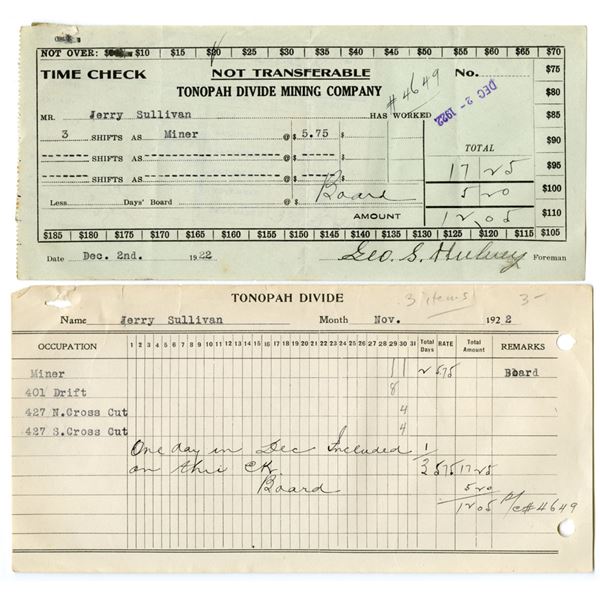 NOT OVER: $10 $15 $20 $25 $30 $35 $40 $45 $50 $55 $60 $65 $70
TIME CHECK NOT TRANSFERABLE No. $75
TONOPAH DIVIDE MINING COMPANY # 4649 DEC 2 - 1922 $80
MR. Jerry Sullivan HAS WORKED $85
3 SHIFTS AS Miner @ $ 5.75 $ $90
TOTAL
SHIFTS AS @ $ $ 17 25 $95
SHIFTS AS @ $ $
Less Days' Board @ $ Board 5 20 $100
AMOUNT 12 05 $110
$185 $180 $175 $170 $165 $160 $155 $150 $145 $140 $135 $130 $125 $120 $115 $105
Date Dec. 2nd. 1922 Geo. S. Foreman
TONOPAH DIVIDE 3 items 3-
Name Jerry Sullivan Month Nov. 1922
OCCUPATION 1 2 3 4 5 6 7 8 9 10 11 12 13 14 15 16 17 18 19 20 21 22 23 24 25 26 27 28 29 30 31 Total Days RATE Total Amount REMARKS
Miner 1 1 2 575 Board
401 Drift 8
427 N.Cross Cut 4
427 S.Cross Cut 4
One day in Dec Included 1
on this CK. 3 575 17 25
Board 5 20
12 05 #4649